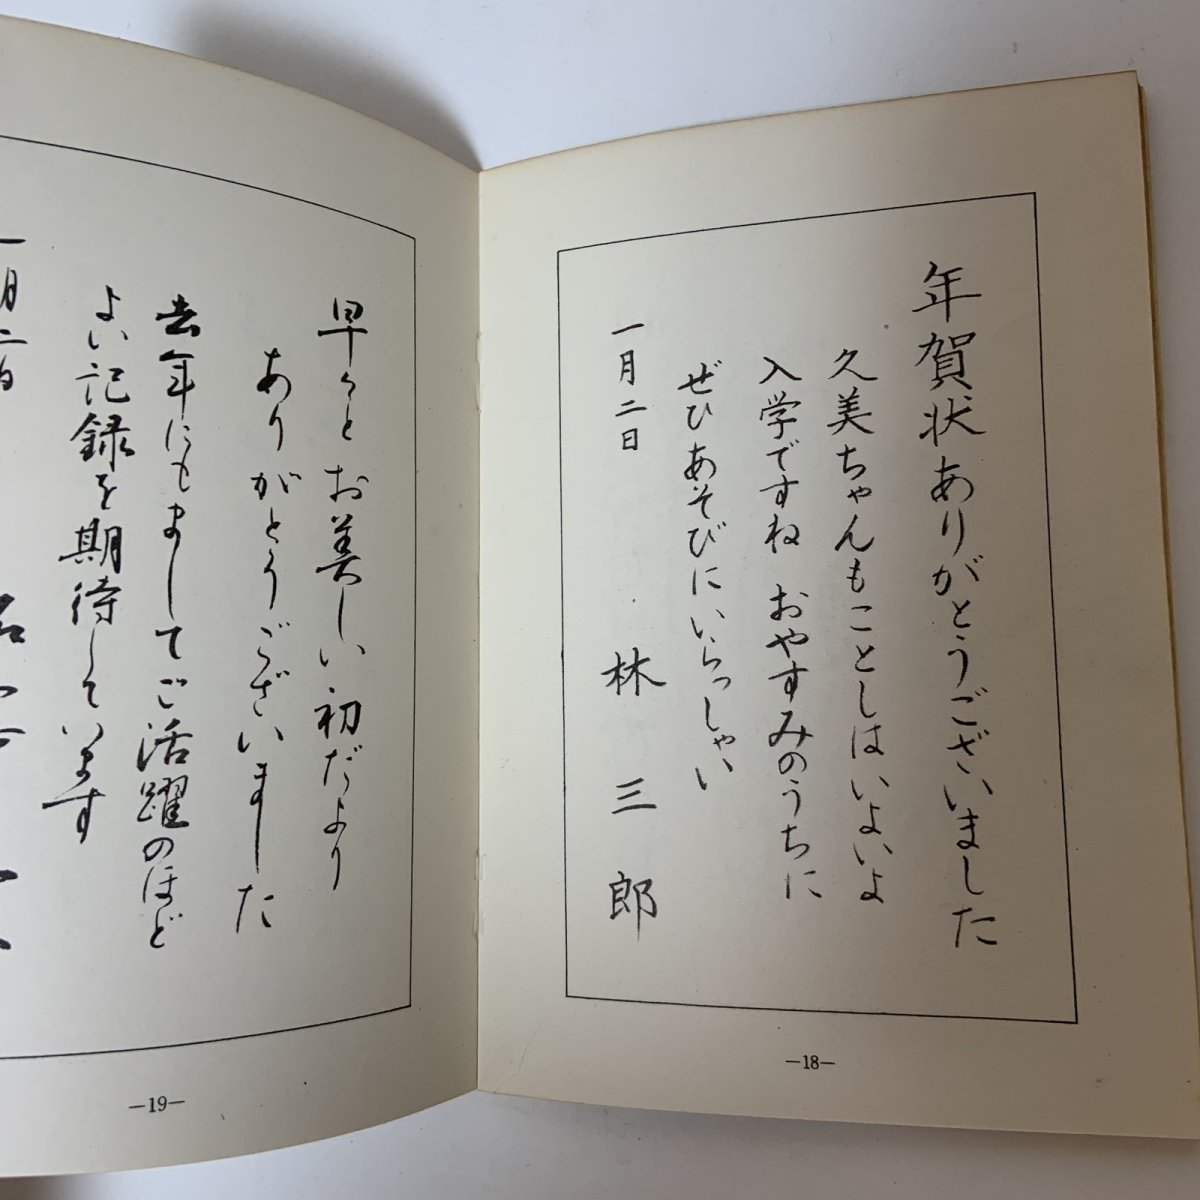 年賀状ありがとうございました
久美ちゃんもことしはいよいよ
入学ですね おやすみのうちに
ぜひあそびにいらっしゃい
一月二日
林三郎
—18—
早々とお美しい初だより
ありがとうございました
去年にもましてご活躍のほど
よい記録を期待しています
一月二日
—19—